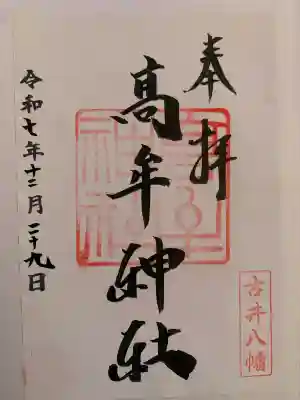 奉拝
高牟神社
古井八幡
令和七年十二月二十九日